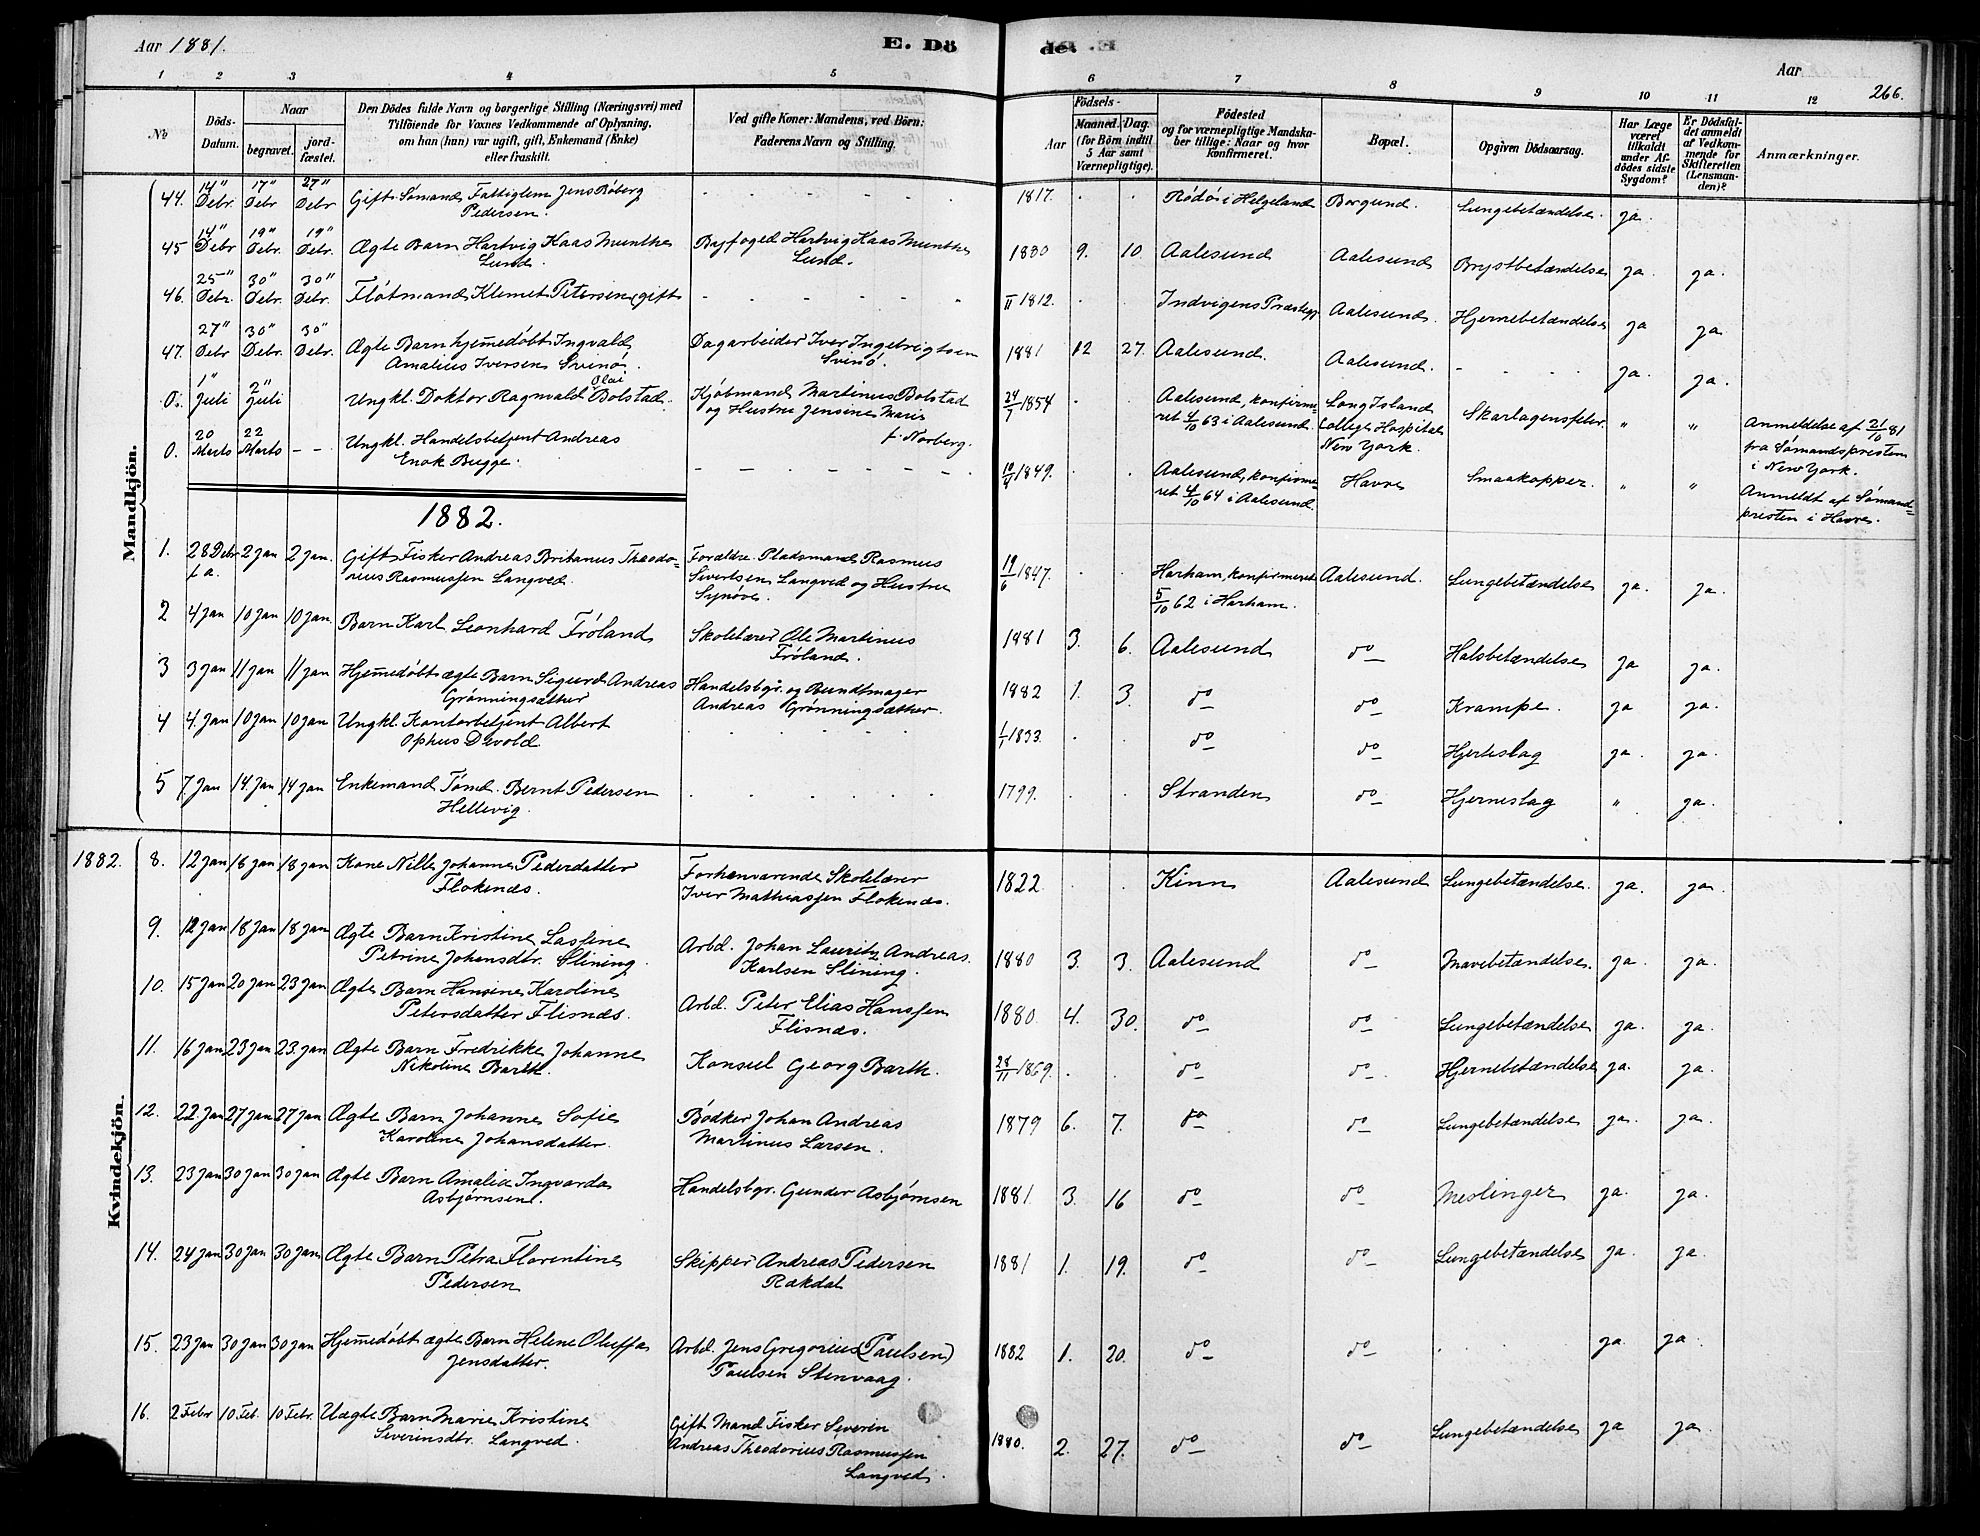 Aar 1881.
E. Dö
de. E.
Aar
266.
1 2 3 4 5 6 7 8 9 10 11 12
No
Döds-Datum.
Naar
begravet.
jord-fæstet.
Den Dödes fulde Navn og borgerlige Stilling (Næringsvei) med
Tilföiende for Voxnes Vedkommende af Oplysning,
om han (hun) var ugift, gift, Enkemand (Enke)
eller fraskilt.
Ved gifte Koner: Mandens, ved Börn:
Faderens Navn og Stilling.
Födsels-
Aar
Maaned. Dag.
(for Börn indtil
5 Aar samt
Værnepligtige).
Födested
og for værnepligtige Mandska-
ber tillige: Naar og hvor
konfirmeret.
Bopæl.
Opgiven Dödsaarsag.
Har Læge
været
tilkaldt
under Af-
dödes sidste
Sygdom?
Er Dödsfal-
det anmeldt
af Vedkom-
mende for
Skifteretten
(Lensman-
den)?
Anmærkninger.
Mandkjön.
44. 14" Debr. 17" Debr 27" Debr Gift Sømand Fattiglem Jens Røberg 1817. Rødø i Helgeland Borgund. Lungebetændelse. ja.
Pedersen.
45 14" Debr 19" Debr. 19" Debr. Ægte Barn Hartvig Kaas Munthe Byfoged Hartvig Kaas Munthe 1880 9. 10 Aalesund Aalesund Brystbetændelse ja. ja.
Lund. Lund.
46. 25" Debr. 30" Debr. 30" Debr. Fløtmand Klemet Petersen, gift II 1812. Indvigens Præstegj Aalesund. Hjernebetændelse ja ja
47. 27" Debr 30" Debr. 30" Debr. Ægte Barn hjemmedøbt Ingvald Dagarbeider Iver Ingebrigtsen 1881 12 27. Aalesund. Aalesund. ja. ja.
Amalius Iversen Svinø. Svinø.
0. 1" Juli 2" Juli Ungkl. Doktor Ragnvald Olai Bolstad. Kjøbmand Martinus Bolstad 24/7 1854 Aalesund, konfirme- Long Island Skarlagensfeber " " Anmeldelse af 21/10 81
og Hustru Jensine Marie ret 4/10 63 i Aalesund. College Hospital fra Sømandspresten
f. Norberg. New York. i New York.
0. 20 Marts 22 Marts – – Ungkl. Handelsbetjent Andreas 10/4 1849. Aalesund, konfirme- Havre Smaakopper. " " Anmeldt af Sømand-
Enok Bugge. ret 4/10 64 i Aalesund. presten i Havre.
1882.
1. 28 Debr f.a. 2 Jan 2 Jan. Gift Fisker Andreas Britanus Theodo- Forældre. Pladsmand Rasmus 19/6 1847. Harham, konfirmeret Aalesund. Lungebetændelse ja. ja.
rius Rasmussen Langved. Sivertsen Langved og Hustru 5/10 62 i Harham.
Synøve.
2 4 Jan 10 Jan 10 Jan. Barn Karl Leonhard Frøland Skolelærer Ole Martinus 1881 3. 6. Aalesund do Halsbetændelse ja ja.
Frøland.
3 3 Jan 11 Jan 11 Jan Hjemmedøbt ægte Barn Sigurd Andreas Handelsbgr. og Bundtmager 1882 1. 3. do do Krampe. ja ja.
Grønningsæther Andreas Grønningsæther.
4 4. Jan 10 Jan 10 Jan Ungkl. Kontorbetjent Albert 1/1 1833. do do Hjerteslag ja. ja.
Ophus Devold
5 7. Jan 14. Jan 14 Jan Enkemand Tømd. Bernt Pedersen 1799. Stranden do Hjerneslag " ja.
Hellevig.
Kvindekjön.
1882. 8. 12 Jan 18 Jan 18 Jan Kone Nille Johanne Pedersdatter Forhenværende Skolelærer 1822. Kinn Aalesund Lungebetændelse. ja. ja.
Flokenæs. Iver Mathiassen Flokenæs.
9. 12 Jan 18 Jan 18 Jan Ægte Barn Kristine Lassine Arbd. Johan Lauritz Andreas 1880 3. 3. Aalesund do Mavebetændelse. ja. ja.
Petrine Johansdtr. Slining. Karlsen Slining.
10. 15 Jan 20 Jan 23 Jan Ægte Barn Hansine Karoline Arbd. Peter Elias Hanssen 1880. 4. 30. do do Lungebetændelse ja. ja.
Petersdatter Flisnæs. Flisnæs.
11. 16 Jan 23 Jan 23. Jan Ægte Barn Fredrikke Johanne Konsul Georg Barth. 28/11 1869. do do Hjernebetændelse ja. ja.
Nikoline Barth.
12. 22. Jan 27 Jan 27 Jan Ægte Barn Johanne Sofie Bødker Johan Andreas 1879 6. 7. do do Lungebetændelse ja. ja.
Karoline Johansdatter. Martinus Larsen.
13. 23 Jan 30 Jan 30 Jan Ægte Barn Amalia Ingvarda Handelsbgr. Gunder Asbjørnsen 1881. 3. 16 do do Meslinger ja. ja.
Asbjørnsen.
14. 24 Jan 30 Jan 30 Jan Ægte Barn Petra Florentine Skipper Andreas Pedersen 1881 1. 19. do do Lungebetændelse ja. ja.
Pedersen Rakdal
15. 23 Jan 30 Jan 30 Jan Hjemmedøbt ægte Barn Helene Oluffa Arbd. Jens Gregorius (Paulsen) 1882 1. 20. do do ja ja.
Jensdatter. Paulsen Stenvaag.
16. 2 Febr 10 Feb. 10 Febr. Uægte Barn Marie Kristine Gift Mand Fisker Severin 1880. 2. 27. do do Lungebetændelse ja ja.
Severinsdtr. Langved. Andreas Theodorius Rasmussen
Langved.